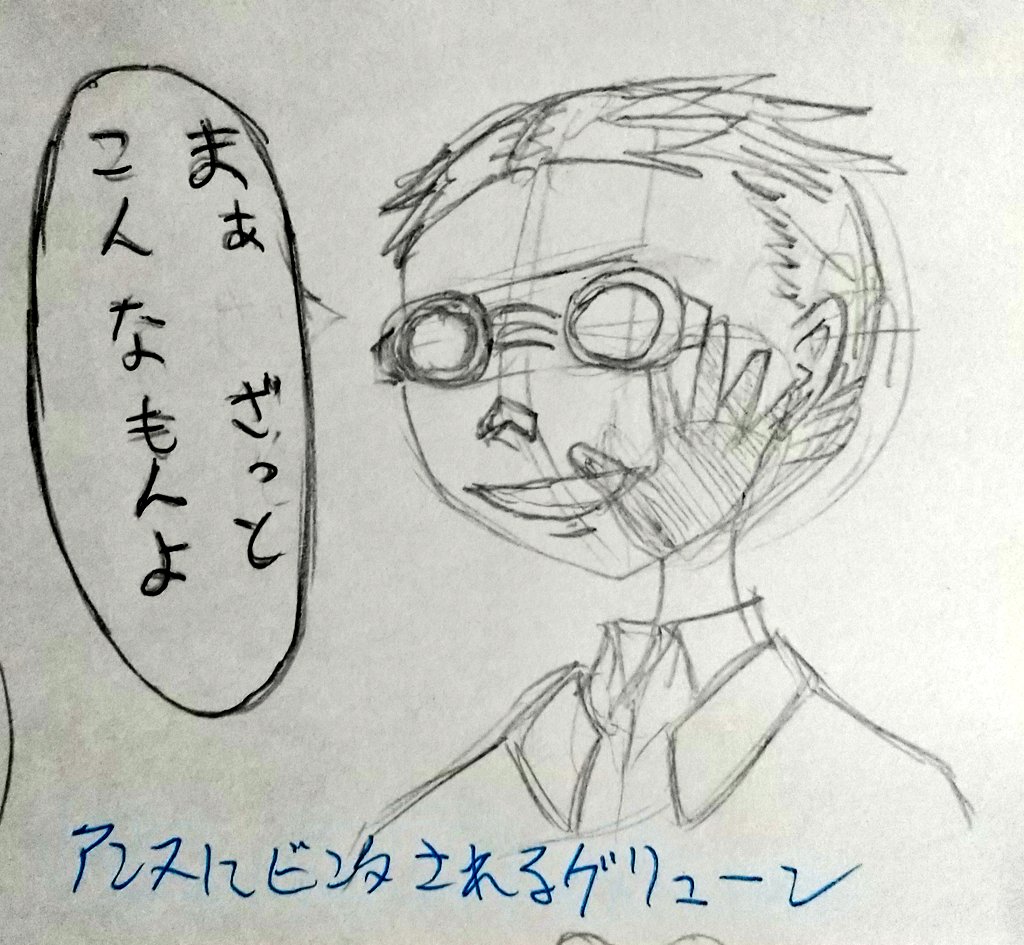 まぁ ざっと
こんなもんよ
アンヌにビンタされるグリューン